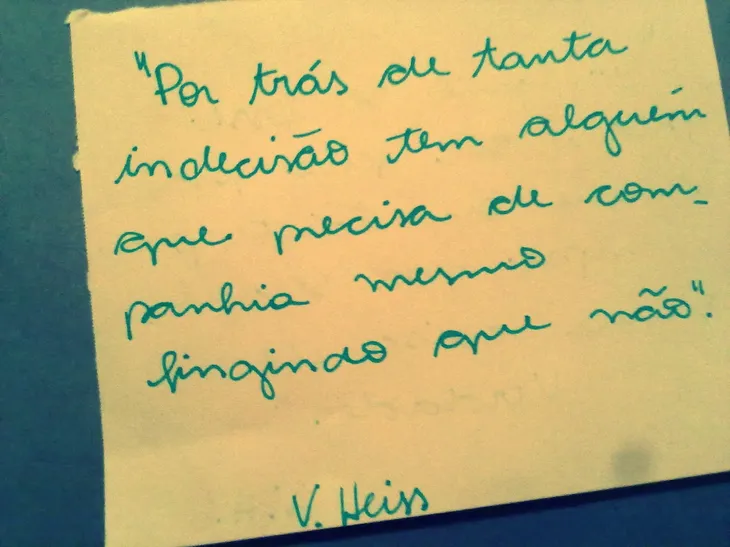 "Por trás de tanta
indecisão tem alguém
que precisa de com-
panhia mesmo
fingindo que não".
V. Heiss